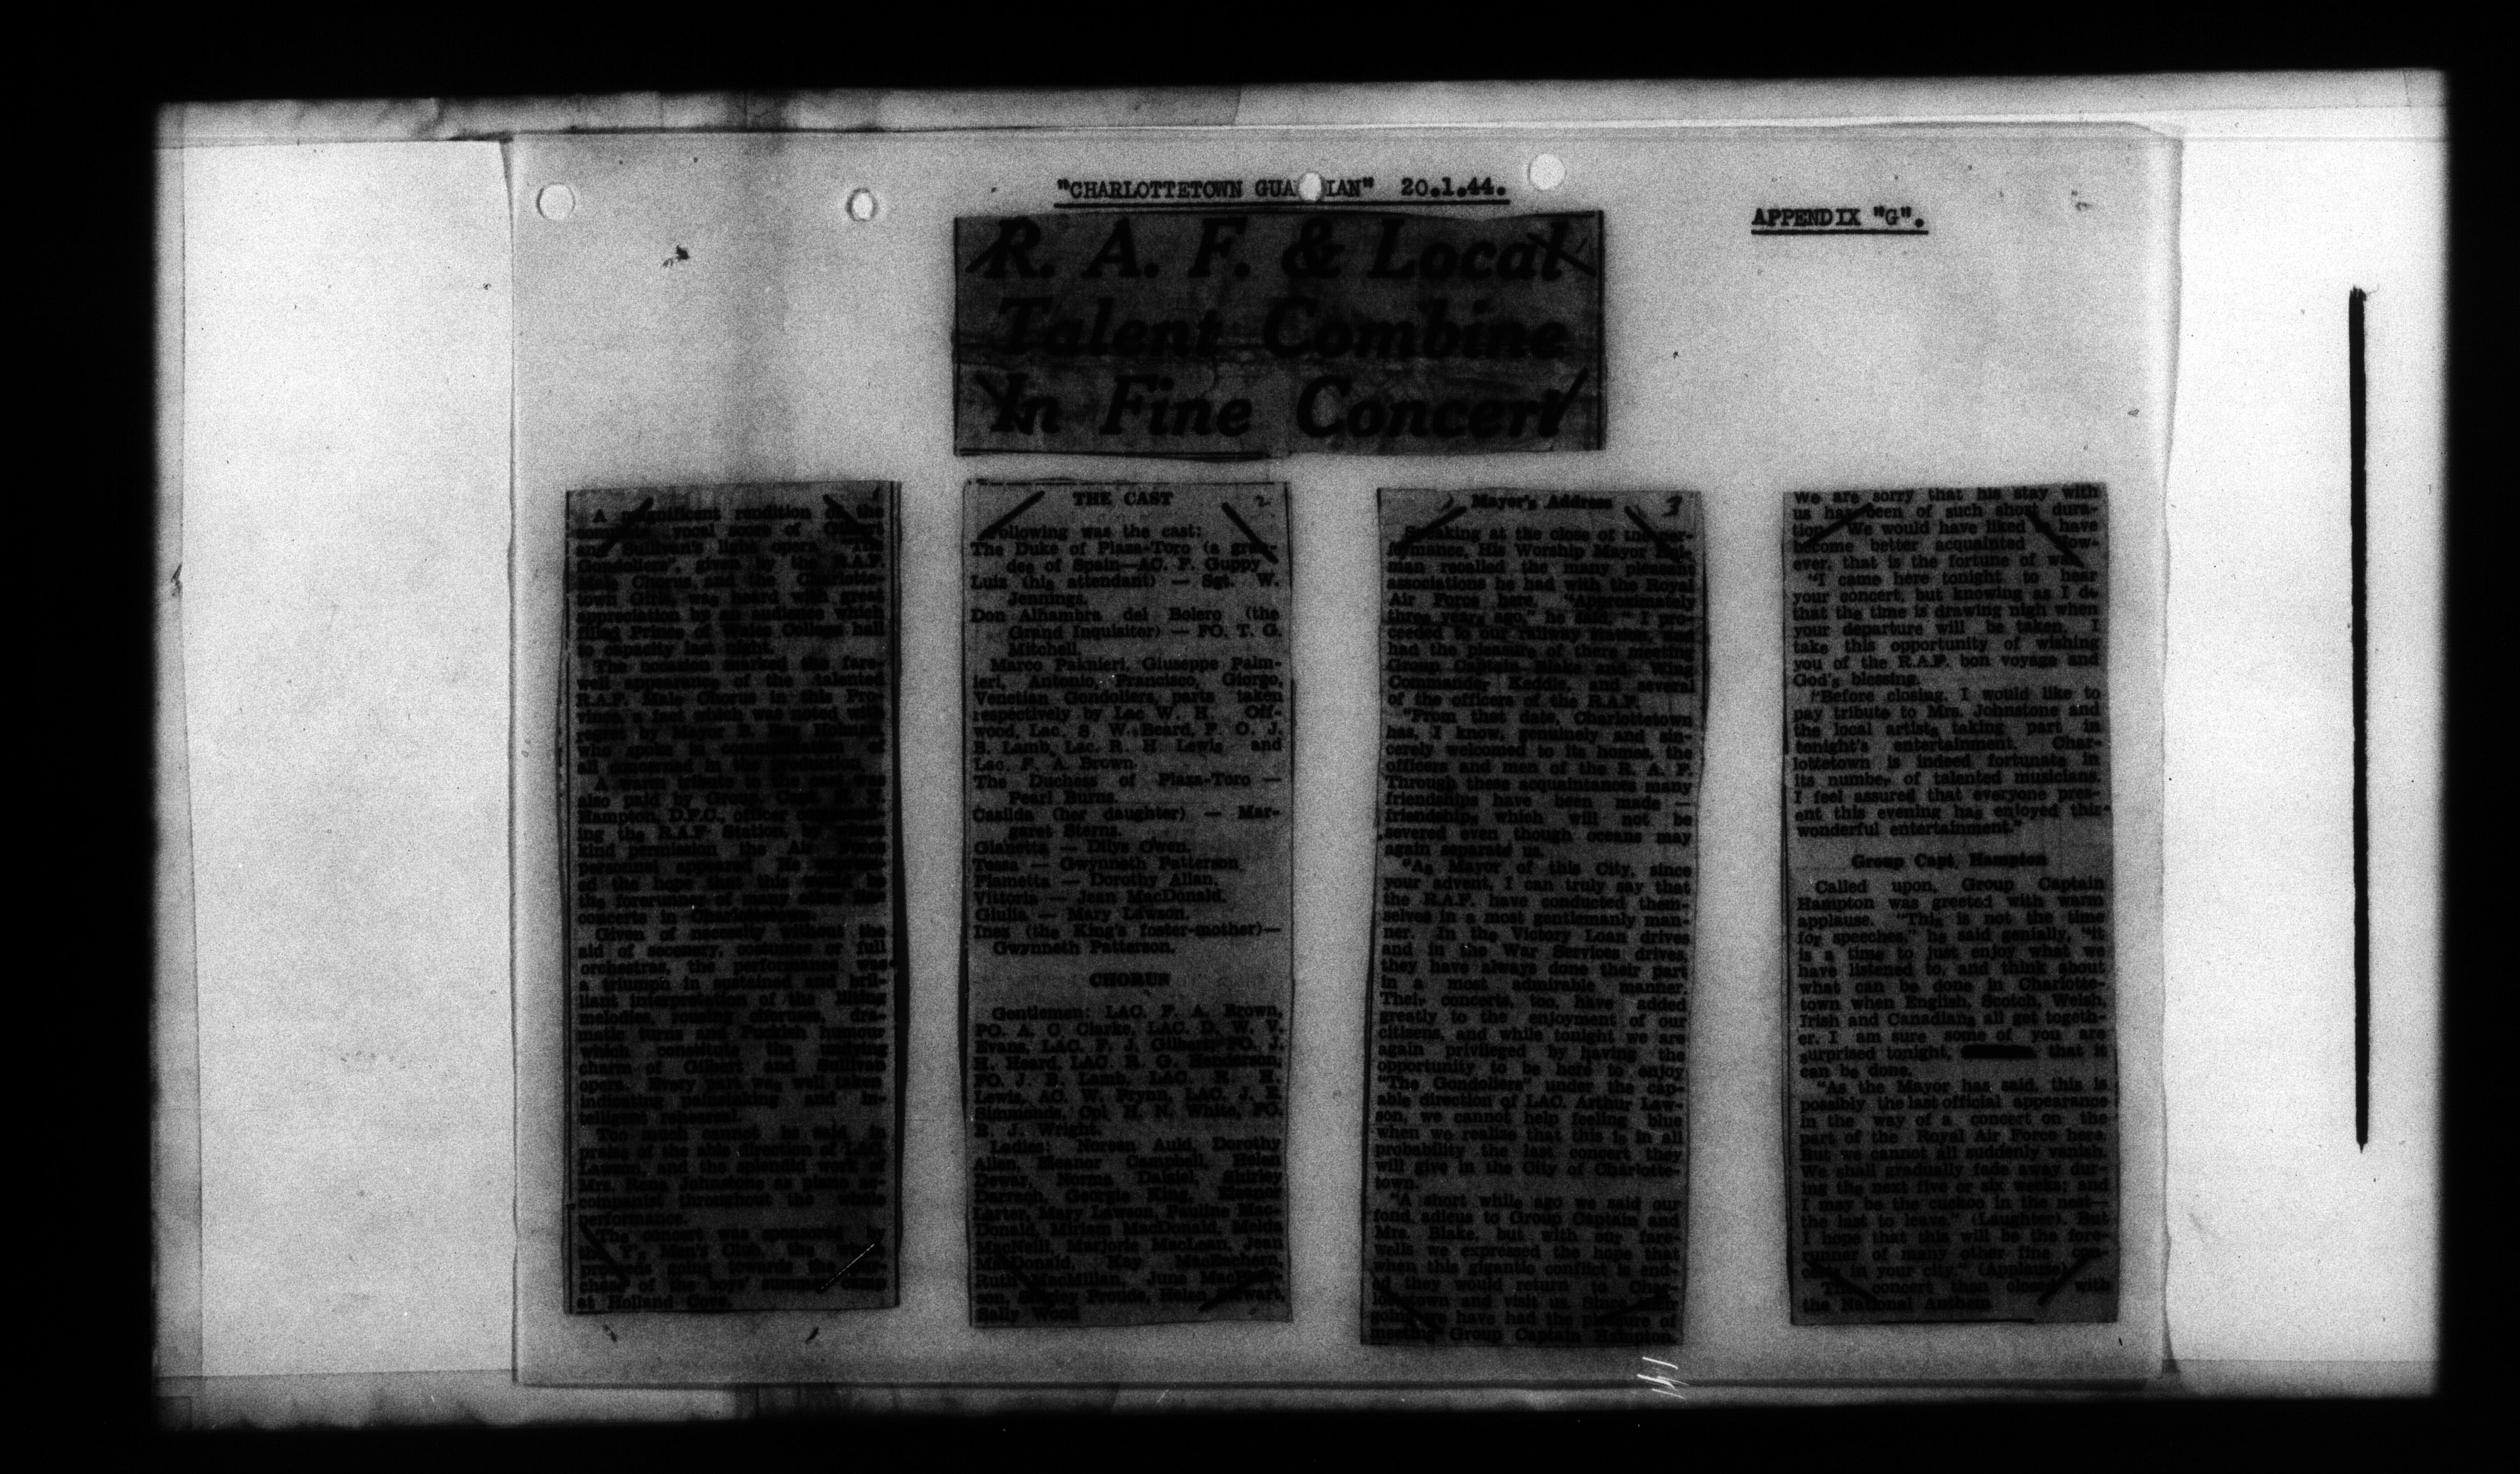 "CHARLOTTETOWN GUA IAN" 20.1.44.
APPENDIX "G".
R. A. F. & Local
Talent Combine
In Fine Concert
1
A magnificent rendition of the
vocal score of Gilbert
and Sullivan's light opera "The
Gondoliers", given by the R.A.F.
Male Chorus and the Charlotte-
town Girls, was heard with great
appreciation by an audience which
filled Prince of Wales College hall
to capacity last night.
The occasion marked the fare-
well appearance of the talented
R.A.F. Male Chorus in this Pro-
vince, a fact which was noted with
regret by Mayor B. Holman,
who spoke in commendation of
all concerned in the production.
A warm tribute to the cast was
also paid by Group Capt.
Hampton, D.F.C., officer command-
ing the R.A.F. Station, by whose
kind permission the Air Force
personnel appeared. He express-
ed the hope that this would be
the forerunner of many other
concerts in Charlottetown.
Given of necessity without the
aid of scenery, costumes or full
orchestras, the performance was
a triumph in sustained and bril-
liant interpretation of the lilting
melodies, rousing choruses, dra-
matic turns and Puckish humour
which constitute the undying
charm of Gilbert and Sullivan
opera. Every part was well taken
indicating painstaking and in-
telligent rehearsal.
Too much cannot be said in
praise of the able direction of LAC.
Lawson, and the splendid work of
Mrs. Rena Johnstone as piano ac-
companist throughout the whole
performance.
The concert was sponsored by
the Y's Men's Club, the
proceeds going towards the pur-
chase of the boys' summer camp
at Holland Cove.
THE CAST 2
Following was the cast:
The Duke of Plaza-Toro (a gran-
dee of Spain—AC. F. Guppy
Luiz (his attendant) — Sgt. W.
Jennings.
Don Alhambra del Bolero (the
Grand Inquisitor) — FO. T. G.
Mitchell.
Marco Palmieri, Giuseppe Palm-
ieri, Antonio, Francisco, Giorgo,
Venetian Gondoliers, parts taken
respectively by Lac W. H. Off-
wood, Lac. S. W. Beard, F. O. J.
B. Lamb, Lac. R. H. Lewis and
Lac. F. A. Brown.
The Duchess of Plaza-Toro —
Pearl Burns.
Casilda (her daughter) — Mar-
garet Sterns.
Gianetta — Dilys Owen.
Tessa — Gwynneth Patterson.
Fiametta — Dorothy Allan.
Vittoria — Jean MacDonald.
Giulia — Mary Lawson.
Inez (the King's foster-mother)—
Gwynneth Patterson.
CHORUS
Gentlemen: LAC. F. A. Brown,
PO. A. C. Clarke, LAC. D. W. V.
Evans, LAC. F. J. Gilbert, FO. J.
H. Heard, LAC. R. G. Henderson,
FO. J. B. Lamb, LAC. R. H.
Lewis, AC. W. Prynn, LAC. J. E.
Simmonds, Cpl. H. N. White, FO.
R. J. Wright.
Ladies: Noreen Auld, Dorothy
Allen, Eleanor Campbell, Helen
Dewar, Norma Dalziel, Shirley
Darragh, Georgie King, Eleanor
Larter, Mary Lawson, Pauline Mac-
Donald, Miriam MacDonald, Melda
MacNeill, Marjorie MacLean, Jean
MacDonald, Kay MacEachern,
Ruth MacMillan, June
Shirley Proude, Helen Stewart,
Sally Wood
Mayor's Address 3
Speaking at the close of the per-
formance, His Worship Mayor Hol-
man recalled the many pleasant
associations he had with the Royal
Air Force here. "Approximately
three years ago," he said, "I pro-
ceeded to our railway station and
had the pleasure of there meeting
Group Captain Blake and Wing
Commander Keddie, and several
of the officers of the R.A.F.
"From that date, Charlottetown
has, I know, genuinely and sin-
cerely welcomed to its homes, the
officers and men of the R. A. F.
Through these acquaintances many
friendships have been made —
friendships which will not be
severed even though oceans may
again separate us.
"As Mayor of this City, since
your advent, I can truly say that
the R.A.F. have conducted them-
selves in a most gentlemanly man-
ner. In the Victory Loan drives
and in the War Services drives,
they have always done their part
in a most admirable manner.
Their concerts, too, have added
greatly to the enjoyment of our
citizens, and while tonight we are
again privileged by having the
opportunity to be here to enjoy
"The Gondoliers" under the cap-
able direction of LAC. Arthur Law-
son, we cannot help feeling blue
when we realise that this is in all
probability the last concert they
will give in the City of Charlotte-
town.
"A short while ago we said our
fond adieus to Group Captain and
Mrs. Blake, but with our fare-
wells we expressed the hope that
when this gigantic conflict is end-
ed they would return to Char-
lottetown and visit us. Since their
going we have had the pleasure of
meeting Group Captain Hampton.
We are sorry that his stay with
us has been of such short dura-
tion. We would have liked to have
become better acquainted. How-
ever, that is the fortune of war.
"I came here tonight to hear
your concert, but knowing as I do
that the time is drawing nigh when
your departure will be taken, I
take this opportunity of wishing
you of the R.A.F. bon voyage and
God's blessing.
"Before closing, I would like to
pay tribute to Mrs. Johnstone and
the local artists taking part in
tonight's entertainment. Char-
lottetown is indeed fortunate in
its number of talented musicians.
I feel assured that everyone pres-
ent this evening has enjoyed this
wonderful entertainment."
Group Capt. Hampton
Called upon, Group Captain
Hampton was greeted with warm
applause. "This is not the time
for speeches," he said genially, "it
is a time to just enjoy what we
have listened to, and think about
what can be done in Charlotte-
town when English, Scotch, Welsh,
Irish and Canadians all get togeth-
er. I am sure some of you are
surprised tonight, that it
can be done.
"As the Mayor has said, this is
possibly the last official appearance
in the way of a concert on the
part of the Royal Air Force here.
But we cannot all suddenly vanish.
We shall gradually fade away dur-
ing the next five or six weeks; and
I may be the cuckoo in the nest—
the last to leave." (Laughter). But
I hope that this will be the fore-
runner of many other fine con-
certs in your city." (Applause)
The concert then closed with
the National Anthem